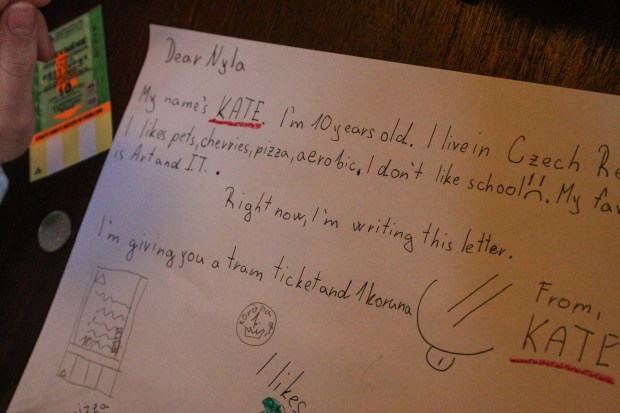 Dear Nyla
My name's KATE. I'm 10 years old. I live in Czech Re
I likes pets, cherries, pizza, aerobic. I don't like school!!. My fav
is Art and IT..
Right now, I'm writing this letter.
I'm giving you a tram ticket and 1 koruna
From,
KATE
koruna
1
I likes
pizza
10